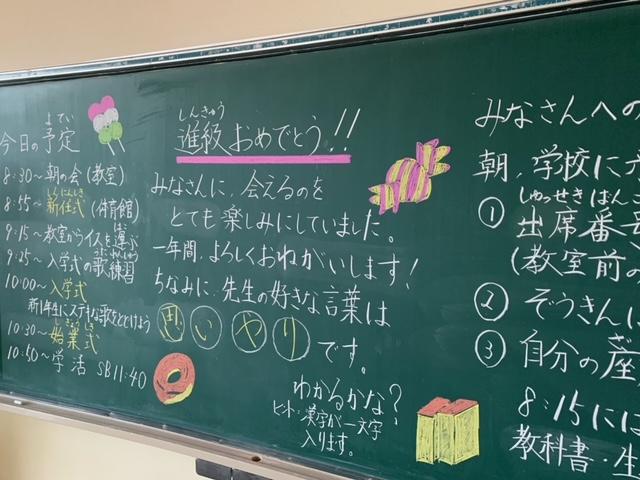 今日の予定
よてい
8:30～朝の会(教室)
しんにんしき
8:45～新任式(体育館)
9:15～教室からイスを運ぶ
9:25～入学式の歌練習
10:00～入学式
新1年生にステキな歌をとどけよう
しぎょうしき
10:30～始業式
10:50～学活 SB11:40
しんきゅう
進級おめでとう!!
みなさんに、会えるのを
とても楽しみにしていました。
一年間、よろしくおねがいします!
ちなみに、先生の好きな言葉は
思いやり です。
わかるかな?
ヒント:漢字が一文字
入ります。
みなさんへの
朝、学校に
しゅっせきばんご
① 出席番号
(教室前の
② ぞうきんに
③ 自分の座
ざ
8:15には
教科書・生